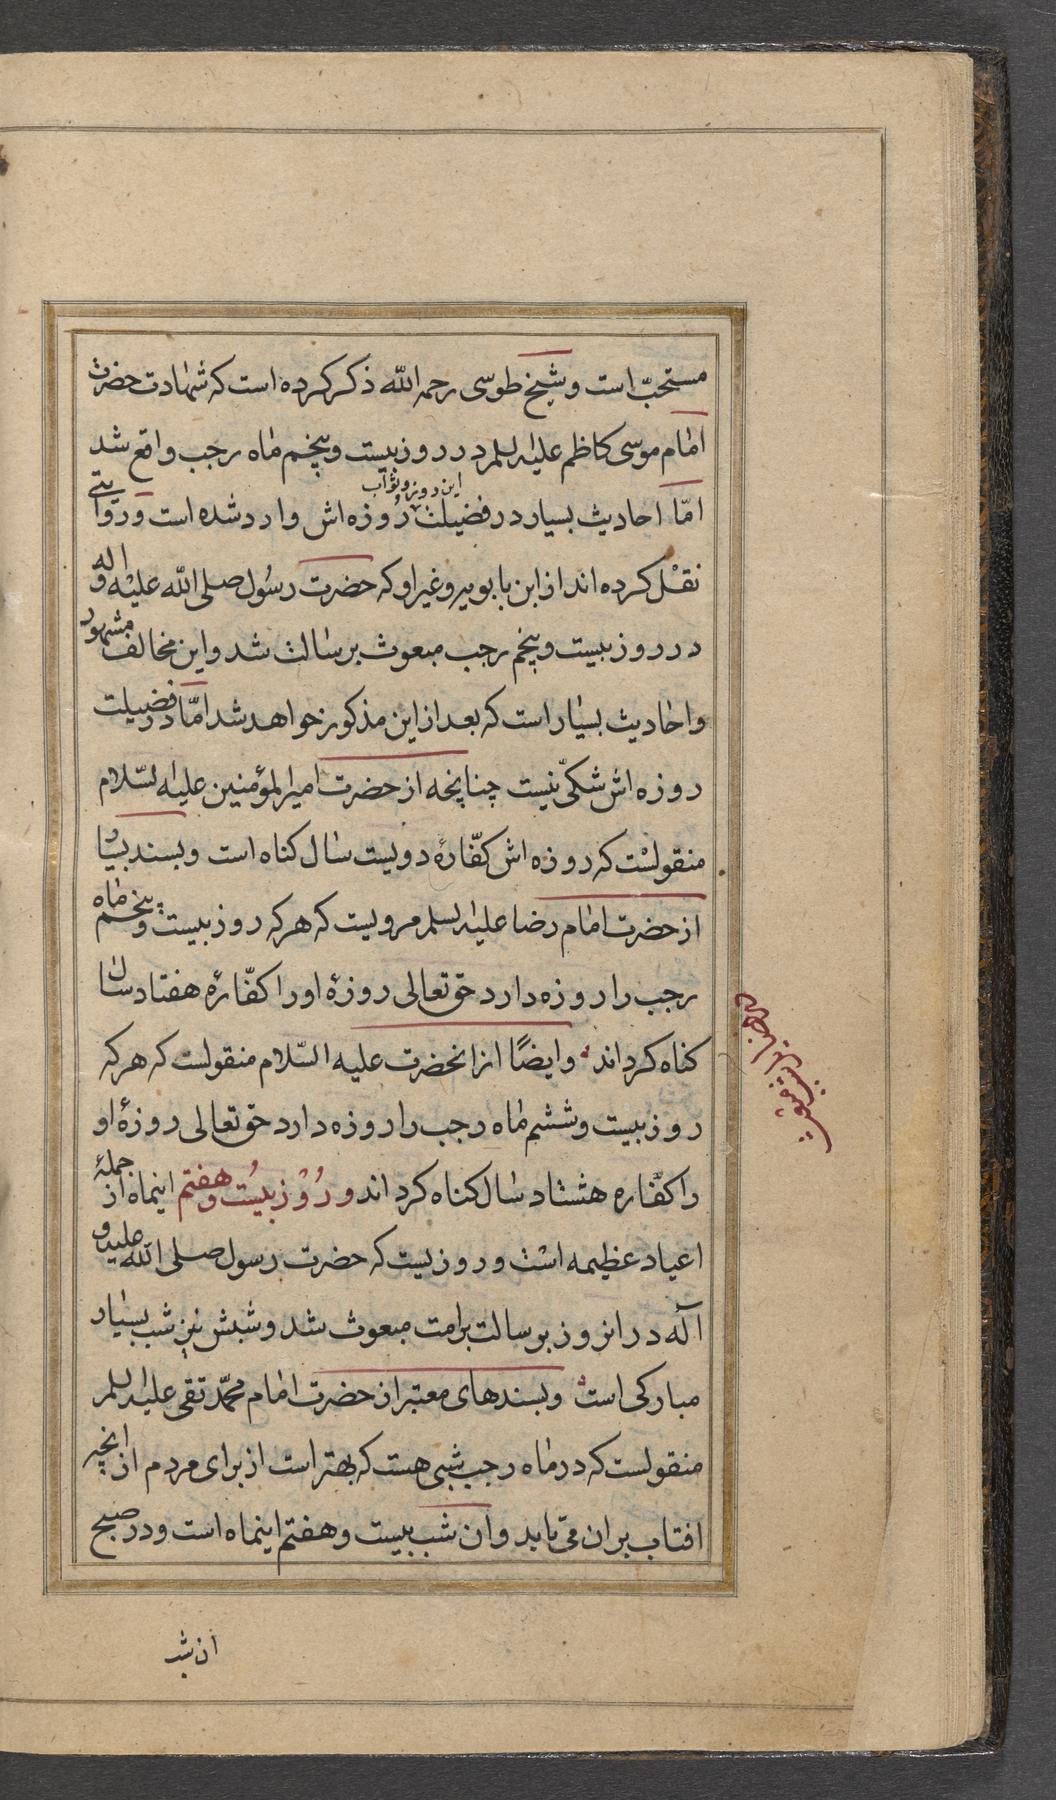 مستحبّ است و شیخ طوسی رحمه الله ذکر کرده است که شهادت حضرت
امام موسی کاظم علیه السلم در روز بیست و پنجم ماه رجب واقع شد
این روز و ثواب
امّا احادیث بسیار در فضیلت روزه اش وارد شده است و روایتی
نقل کرده اند از ابن بابویه و غیر او که حضرت رسول صلی الله علیه و اله
در روز بیست و پنجم رجب مبعوث برسالت شد و این مخالف مشهور
و احادیث بسیار است که بعد از این مذکور خواهد شد امّا در فضیلت
روزه اش شکّی نیست چنانچه از حضرت امیر المؤمنین علیه السّلام
منقولست که روزه اش کفّارهٔ دویست سال کناه است و بسند بسیار
از حضرت امام رضا علیه السلم مرویست که هر که روز بیست و پنجم ماه
رجب را روزه دارد حق تعالی روزهٔ او را کفّارهٔ هفتاد سال
کناه کرداند و ایضًا از انحضرت علیه السّلام منقولست که هر که
روز بیست و ششم ماه رجب را روزه دارد حق تعالی روزهٔ او
را کفّاره هشتاد سال کناه کرداند و روز بیست و هفتم اینماه از جملهٔ
اعیاد عظیمه است و روزیست که حضرت رسول صلی الله علیه و
آله در انروز برسالت بر امت مبعوث شد و شبش نیز شب بسیار
مبارکی است و بسندهای معتبر از حضرت امام محمّد تقی علیه السلم
منقولست که در ماه رجب شبی هست که بهتر است از برای مردم از انچه
افتاب بر ان می تابد و ان شب بیست و هفتم اینماه است و در صبح
ان شب